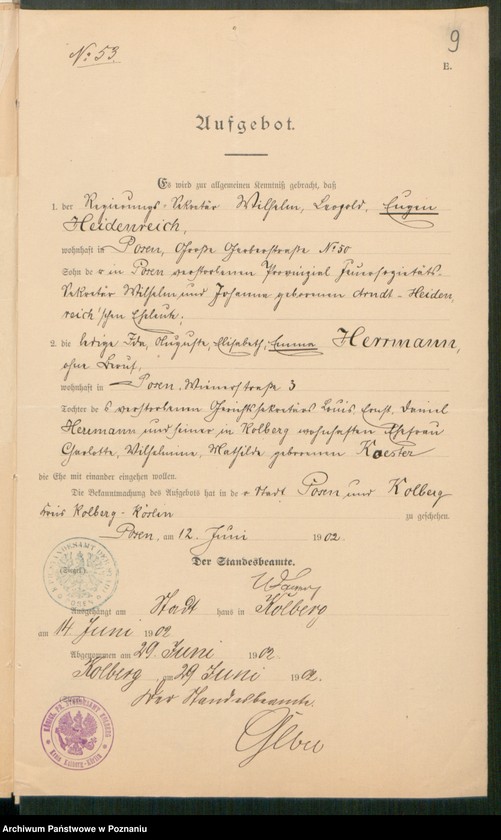 No: 53.
9
E.
Aufgebot.
Es wird zur allgemeinen Kenntniß gebracht, daß
1. der Regierungs-Sekretär Wilhelm, Leopold, Eugen
Heidenreich,
wohnhaft in Posen, Große Gerberstraße No 50
Sohn der in Posen verstorbenen Provinzial Feuersozietäts-
Sekretär Wilhelm und Johanna geborenen Arndt-Heiden
reich'schen Eheleute;
2. die ledige Ida, Auguste, Elisabeth, Emma Herrmann,
ohne Beruf,
wohnhaft in Posen, Wienerstraße 3
Tochter des verstorbenen Gerichtssekretärs Louis, Ernst, Daniel
Herrmann und seiner in Kolberg wohnhaften Ehefrau
Charlotte, Wilhelmine, Mathilde geborenen Koester
die Ehe mit einander eingehen wollen.
Die Bekanntmachung des Aufgebots hat in der Stadt Posen und Kolberg
Kreis Kolberg-Köslin zu geschehen.
Posen, am 12. Juni 1902.
Der Standesbeamte.
(Siegel.)
Ausgehängt am Stadt haus in Kolberg
am 14. Juni 1902
Abgenommen am 29 Juni 1902.
Kolberg, am 29 Juni 1902.
Der Standesbeamte.
KÖNIGL. PR. STANDESAMT KOLBERG
Kreis Kolberg-Körlin
Archiwum Państwowe w Poznaniu